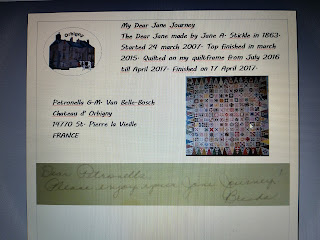 Orbigny
My Dear Jane Journey
The Dear Jane made by Jane A. Stickle in 1863.
Started 24 march 2007. Top finished in march
2015. Quilted on my quiltframe from July 2016
till April 2017. Finished on 17 April 2017.
Petronella G.M. Van Belle-Bosch
Chateau d' Orbigny
14770 St. Pierre la Vieille
FRANCE
Dear Petronella,
Please enjoy your Jane Journey!
Brenda